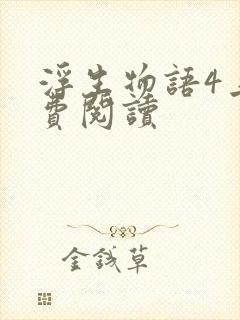 浮生物語4
費閱讀
金錢草